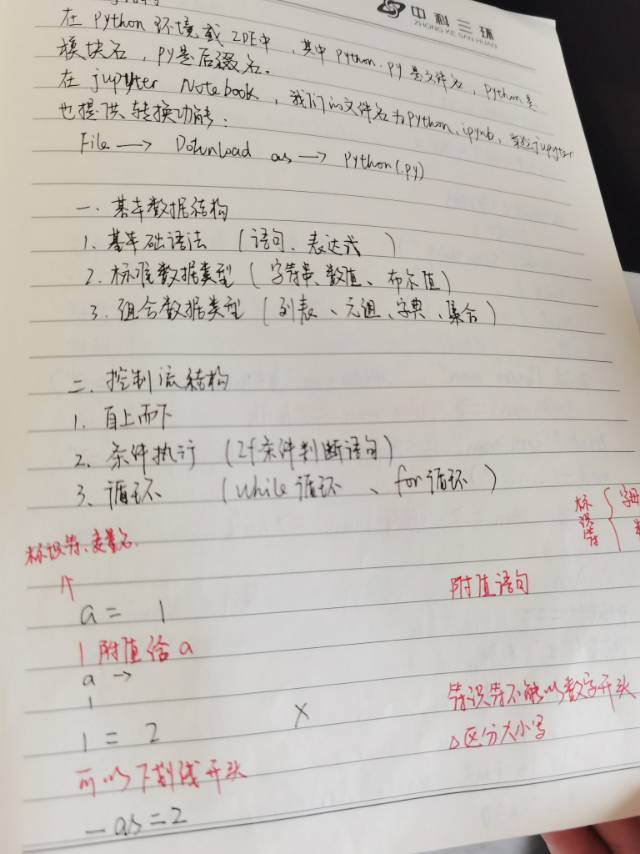 中科三环
ZHONG KE SAN HUAN
在 Python 环境或 IDE中，其中 Python.py 是文件名，Python是
模块名，py是后缀名。
在 jupyter Notebook，我们的文件名为Python.ipynb，jupyter
也提供转换功能：
File → Download as → Python(.py)
一、基本数据结构
1. 基本础语法 （语句、表达式）
2. 标准数据类型（字符串、数值、布尔值）
3. 组合数据类型（列表、元组、字典、集合）
二、控制流结构
1. 自上而下
2. 条件执行（If条件判断语句）
3. 循环 （while循环、for循环）
标识符 { 字母
标识符、变量名.
a = 1 附值语句
1 附值给 a
a →
1
1 = 2 × 符识符不能以数字开头
区分大小写
可以下划线开头
_as=2